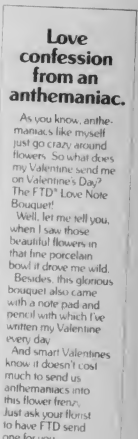 Love
confession
from an
anthemaniac.
As you know, anthe-
maniacs like myself
just go crazy around
flowers. So what does
my Valentine send me
on Valentine's Day?
The FTD® Love Note
Bouquet!
Well, let me tell you,
when I saw those
beautiful flowers in
that fine porcelain
bowl it drove me wild.
Besides, this glorious
bouquet also came
with a note pad and
pencil with which I've
written my Valentine
every day
And smart Valentines
know it doesn't cost
much to send us
anthemaniacs into
this flower frenzy.
Just ask your florist
to have FTD send
one for you